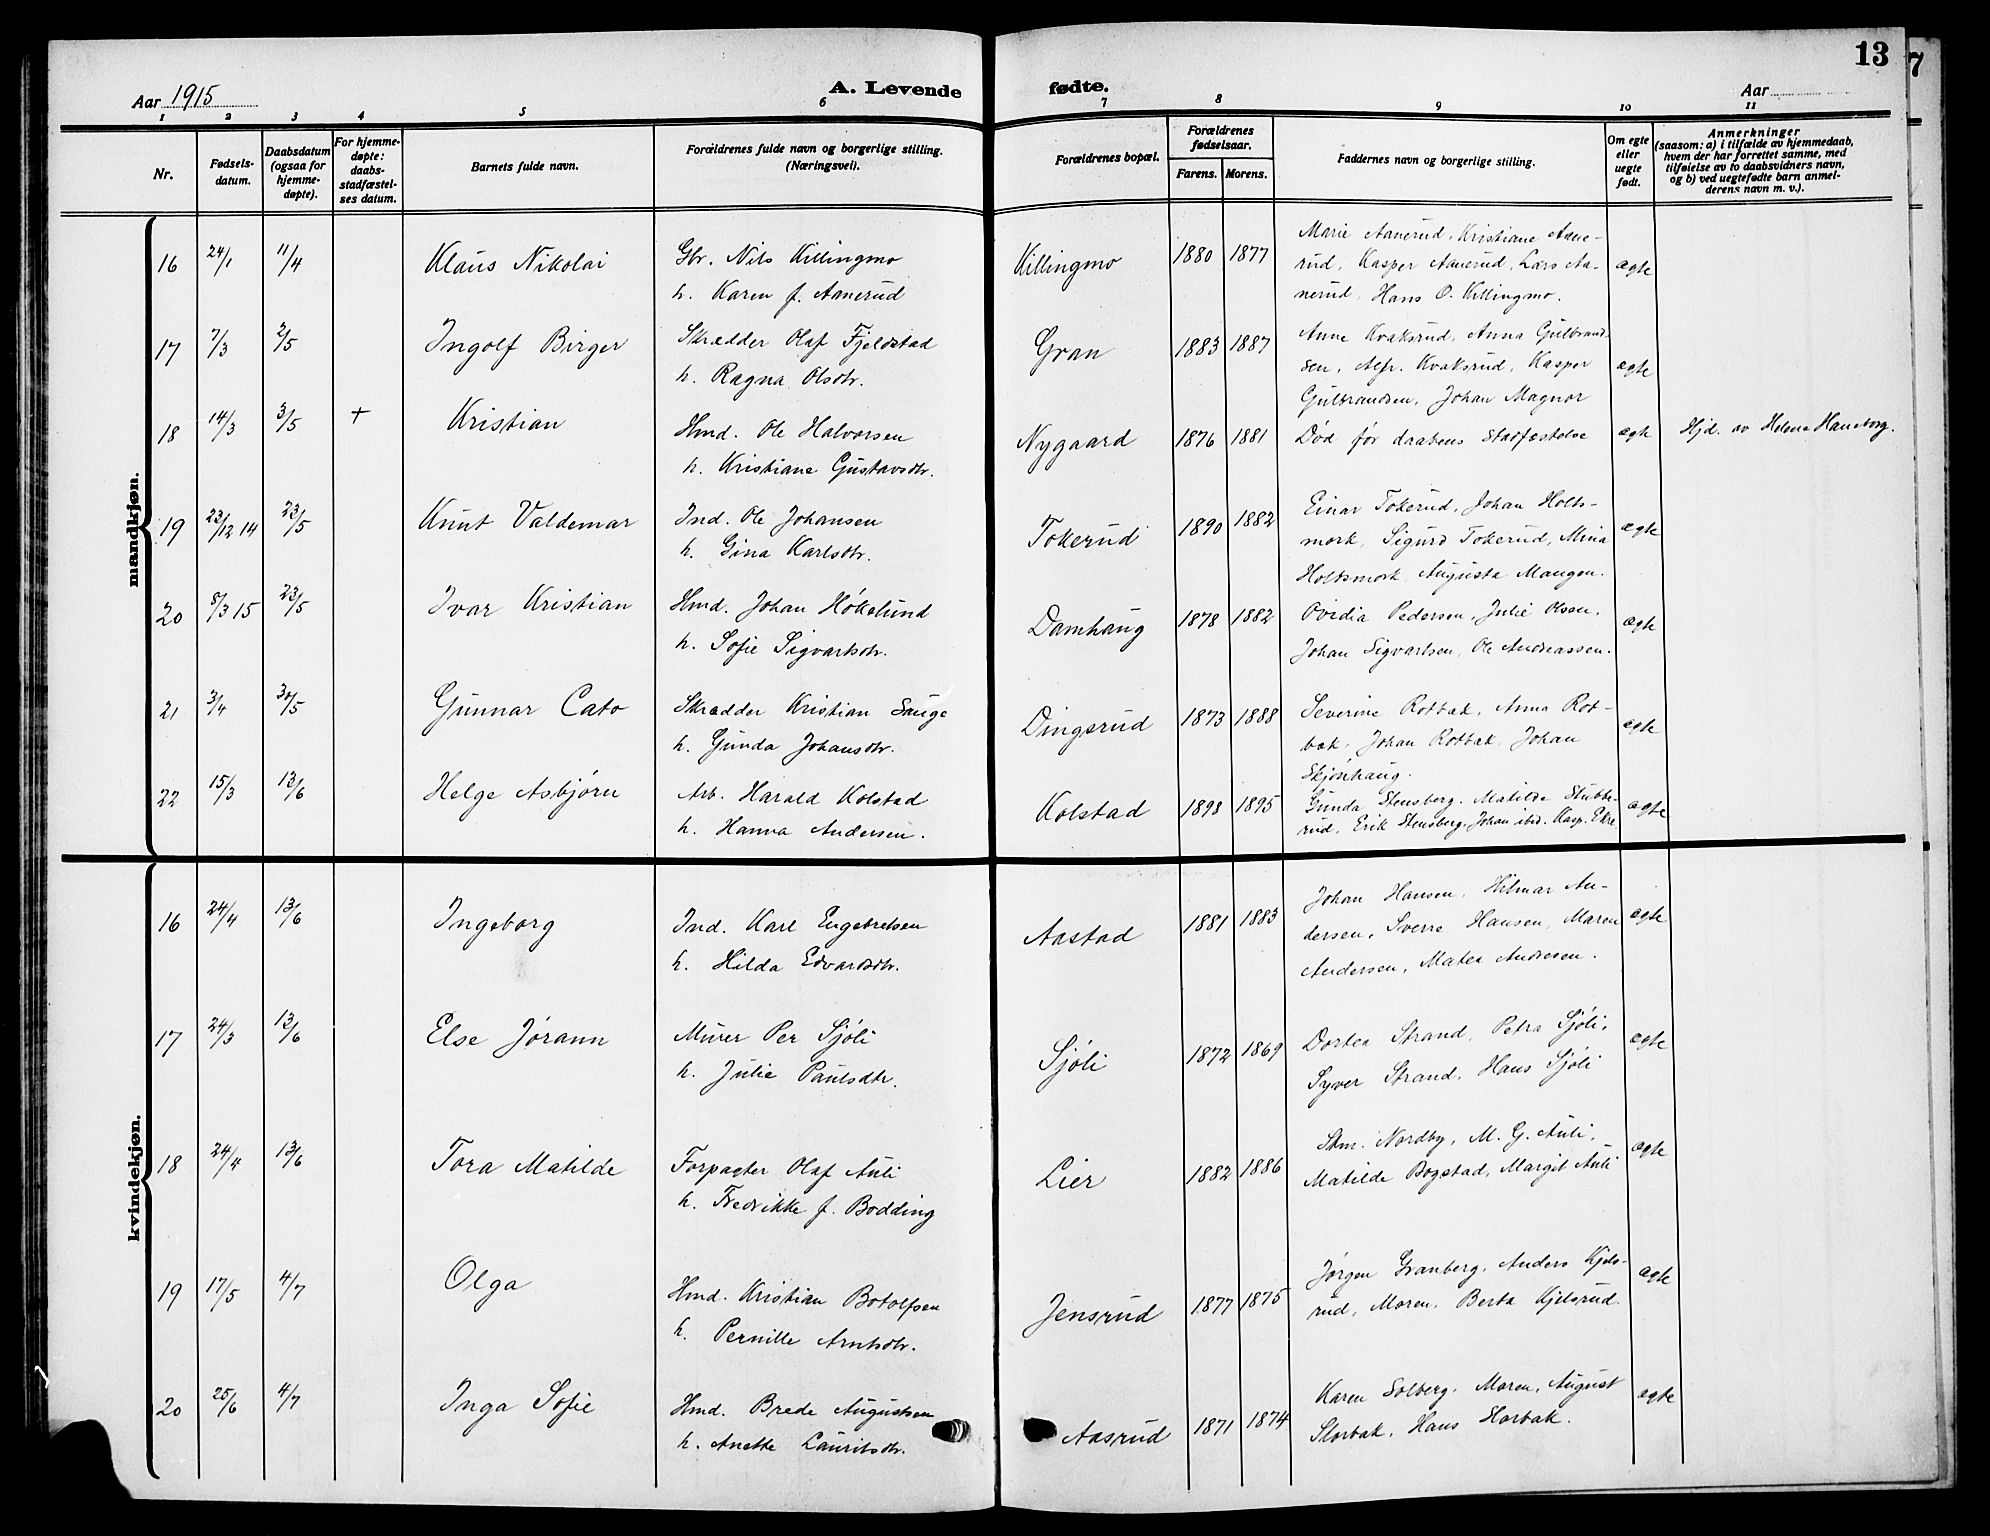 13
7
Aar 1915
A. Levende
fødte.
Aar
1 2 3 4 5 6 7 8 9 10 11
Nr.
Fødsels-
datum.
Daabsdatum
(ogsaa for
hjemme-
døpte).
For hjemme-
døpte:
daabs-
stadfæstel-
ses datum.
Barnets fulde navn.
Forældrenes fulde navn og borgerlige stilling.
(Næringsvei).
Forældrenes bopæl.
Forældrenes
fødselsaar.
Farens. Morens.
Faddernes navn og borgerlige stilling.
Om egte
eller
uegte
født.
Anmerkninger
(saasom: a) i tilfælde av hjemmedaab,
hvem der har forrettet samme, med
tilføielse av to daabsvidners navn,
og b) ved uegtefødte barn anmel-
derens navn m. v.).
mandkjøn.
16 24/1 11/4 Klaus Nikolai Gbr. Nils Killingmo Killingmo 1880 1877 Marie Aanerud, Kristiane Aane-
h. Karen f. Aanerud rud, Kasper Aanerud, Lars Aa- ægte
nerud, Hans O. Killingmo.
17 7/3 2/5 Ingolf Birger Skrædder Olaf Fjeldstad Gran 1883 1887 Anne Kvaksrud, Anna Gulbrand-
h. Ragna Olsdtr. sen, Alfr. Kvaksrud, Kasper ægte
Gulbrandsen, Johan Magnor
18 14/3 3/5 + Kristian Hmd. Ole Halvorsen Nygaard 1876 1881 Død før daabens stadfæstelse ægte Hjd. av Helene Haneborg.
h. Kristiane Gustavsdtr.
19 23/12 14 23/5 Knut Valdemar Ind. Ole Johansen Tokerud 1890 1882 Einar Tokerud, Johan Holts-
h. Gina Karlsdtr. mork, Sigurd Tokerud, Mina ægte
Holtsmork, Augusta Mangen.
20 8/3 15 23/5 Ivar Kristian Hmd. Johan Høkelund Damhaug 1878 1882 Ovidia Pedersen, Julie Olsen, ægte
h. Sofie Sigvartsdtr. Johan Sigvartsen, Ole Andreassen.
21 3/4 30/5 Gunnar Cato Skrædder Kristian Sauge Dingsrud 1873 1888 Severine Rotbæk, Anna Rot-
h. Gunda Johansdtr. bæk, Johan Rotbæk, Johan ægte
Skjønhaug.
22 15/3 13/6 Helge Asbjørn Arb. Harald Kolstad Kolstad 1898 1895 Gunda Stensberg, Matilde Stubbe- ægte
h. Hanna Andersen. rud, Erik Stensberg, Johan ibid. Kasp. Ekre.
kvindekjøn.
16 24/4 13/6 Ingeborg Ind. Karl Engebretsen Aastad 1881 1883 Johan Hansen, Hilmar An-
h. Hilda Edvardsdtr. dersen, Sverre Hansen, Maren ægte
Andersen, Matea Andresen.
17 24/3 13/6 Else Jørann Murer Per Sjøli Sjøli 1872 1869 Dortea Strand, Petra Sjøli, ægte
h. Julie Paulsdtr. Syver Strand, Hans Sjøli
18 24/4 13/6 Tora Matilde Forpagter Olaf Auli Lier 1882 1886 Skm. Nordby, M. G. Auli, ægte
h. Fredrikke f. Bodding Matilde Bogstad, Margit Auli
19 17/5 4/7 Olga Hmd. Kristian Botolfsen Jensrud 1877 1875 Jørgen Granberg, Anders Kjels- ægte
h. Pernille Arntsdtr. rud, Moren, Berta Kjelsrud.
20 25/6 4/7 Inga Sofie Hmd. Brede Augustsen Aasrud 1871 1874 Karen Solberg, Moren, August ægte
h. Anette Lauritsdtr. Storbæk, Hans Horbæk.